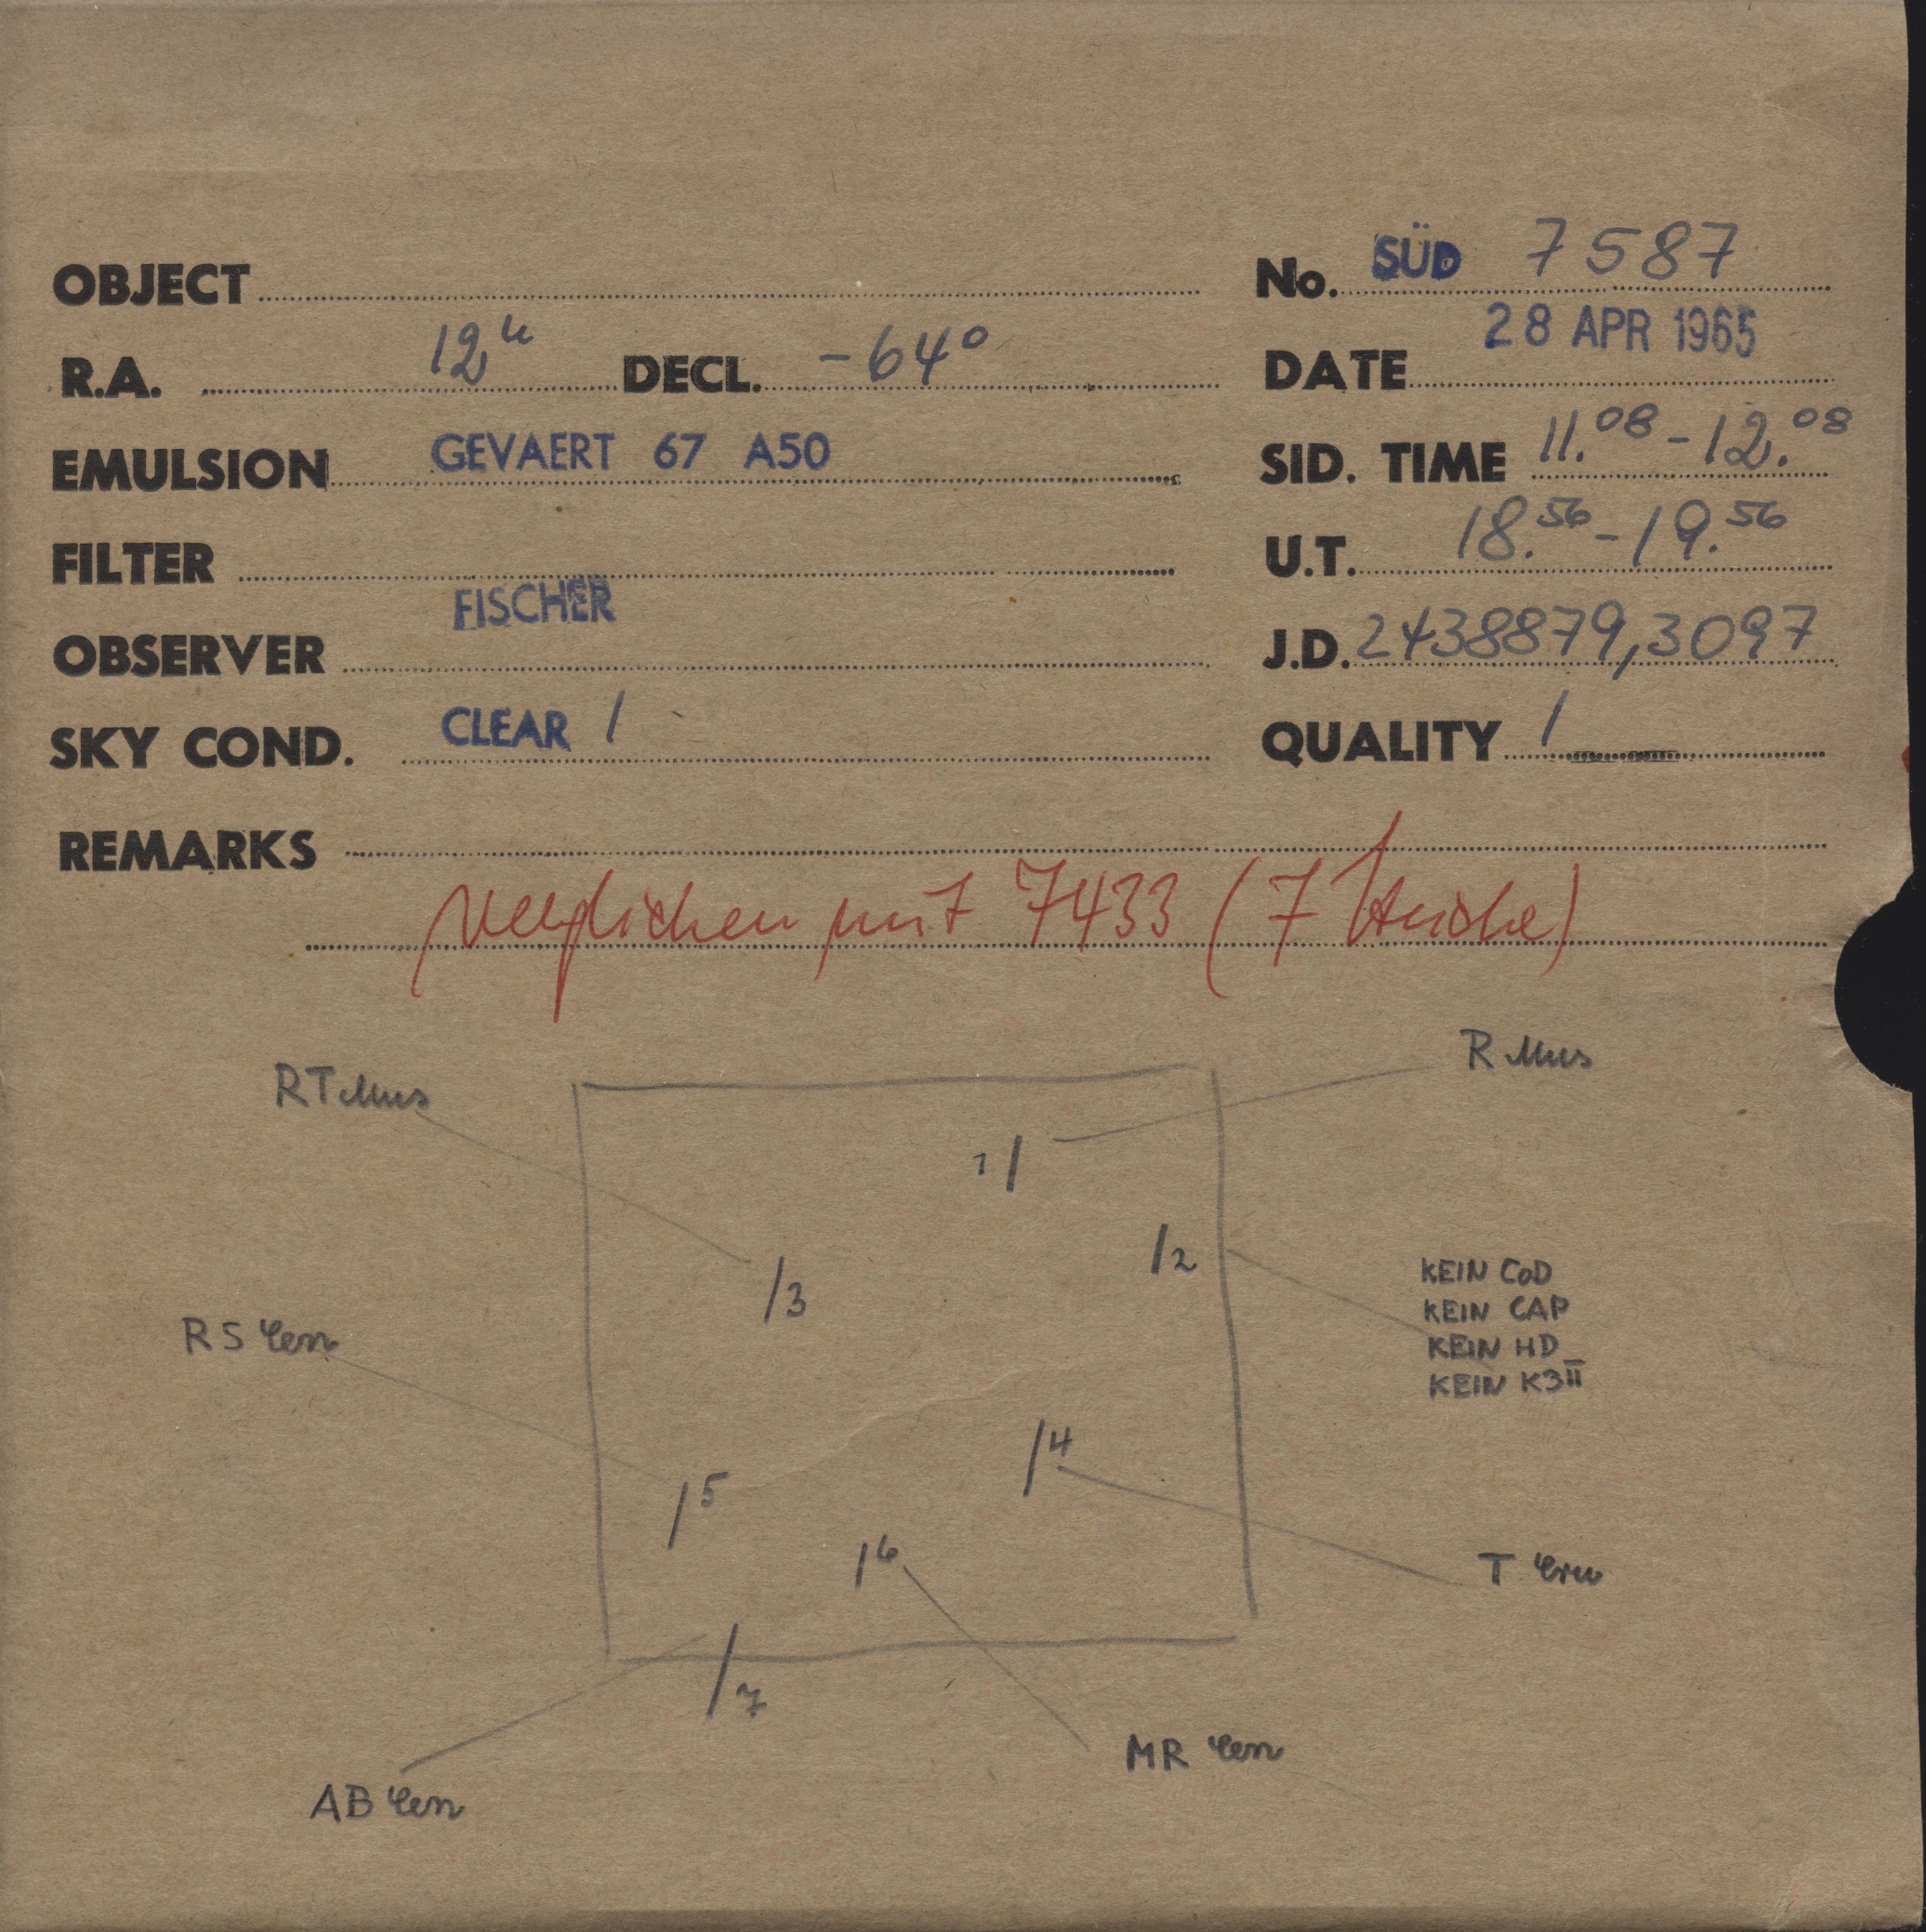 OBJECT No. SÜD 7587
R.A. 12h DECL. -64° DATE 28 APR 1965
EMULSION GEVAERT 67 A50 SID. TIME 11.08 - 12.08
FILTER U.T. 18.56 - 19.56
OBSERVER FISCHER J.D. 2438879,3097
SKY COND. CLEAR 1 QUALITY 1
REMARKS
verglichen mit 7433 (7 Striche)
RT Mus
R Mus
1
2
3
KEIN CoD
KEIN CAP
KEIN HD
KEIN K3II
RS Cen
4
5
6
T Cru
7
MR Cen
AB Cen